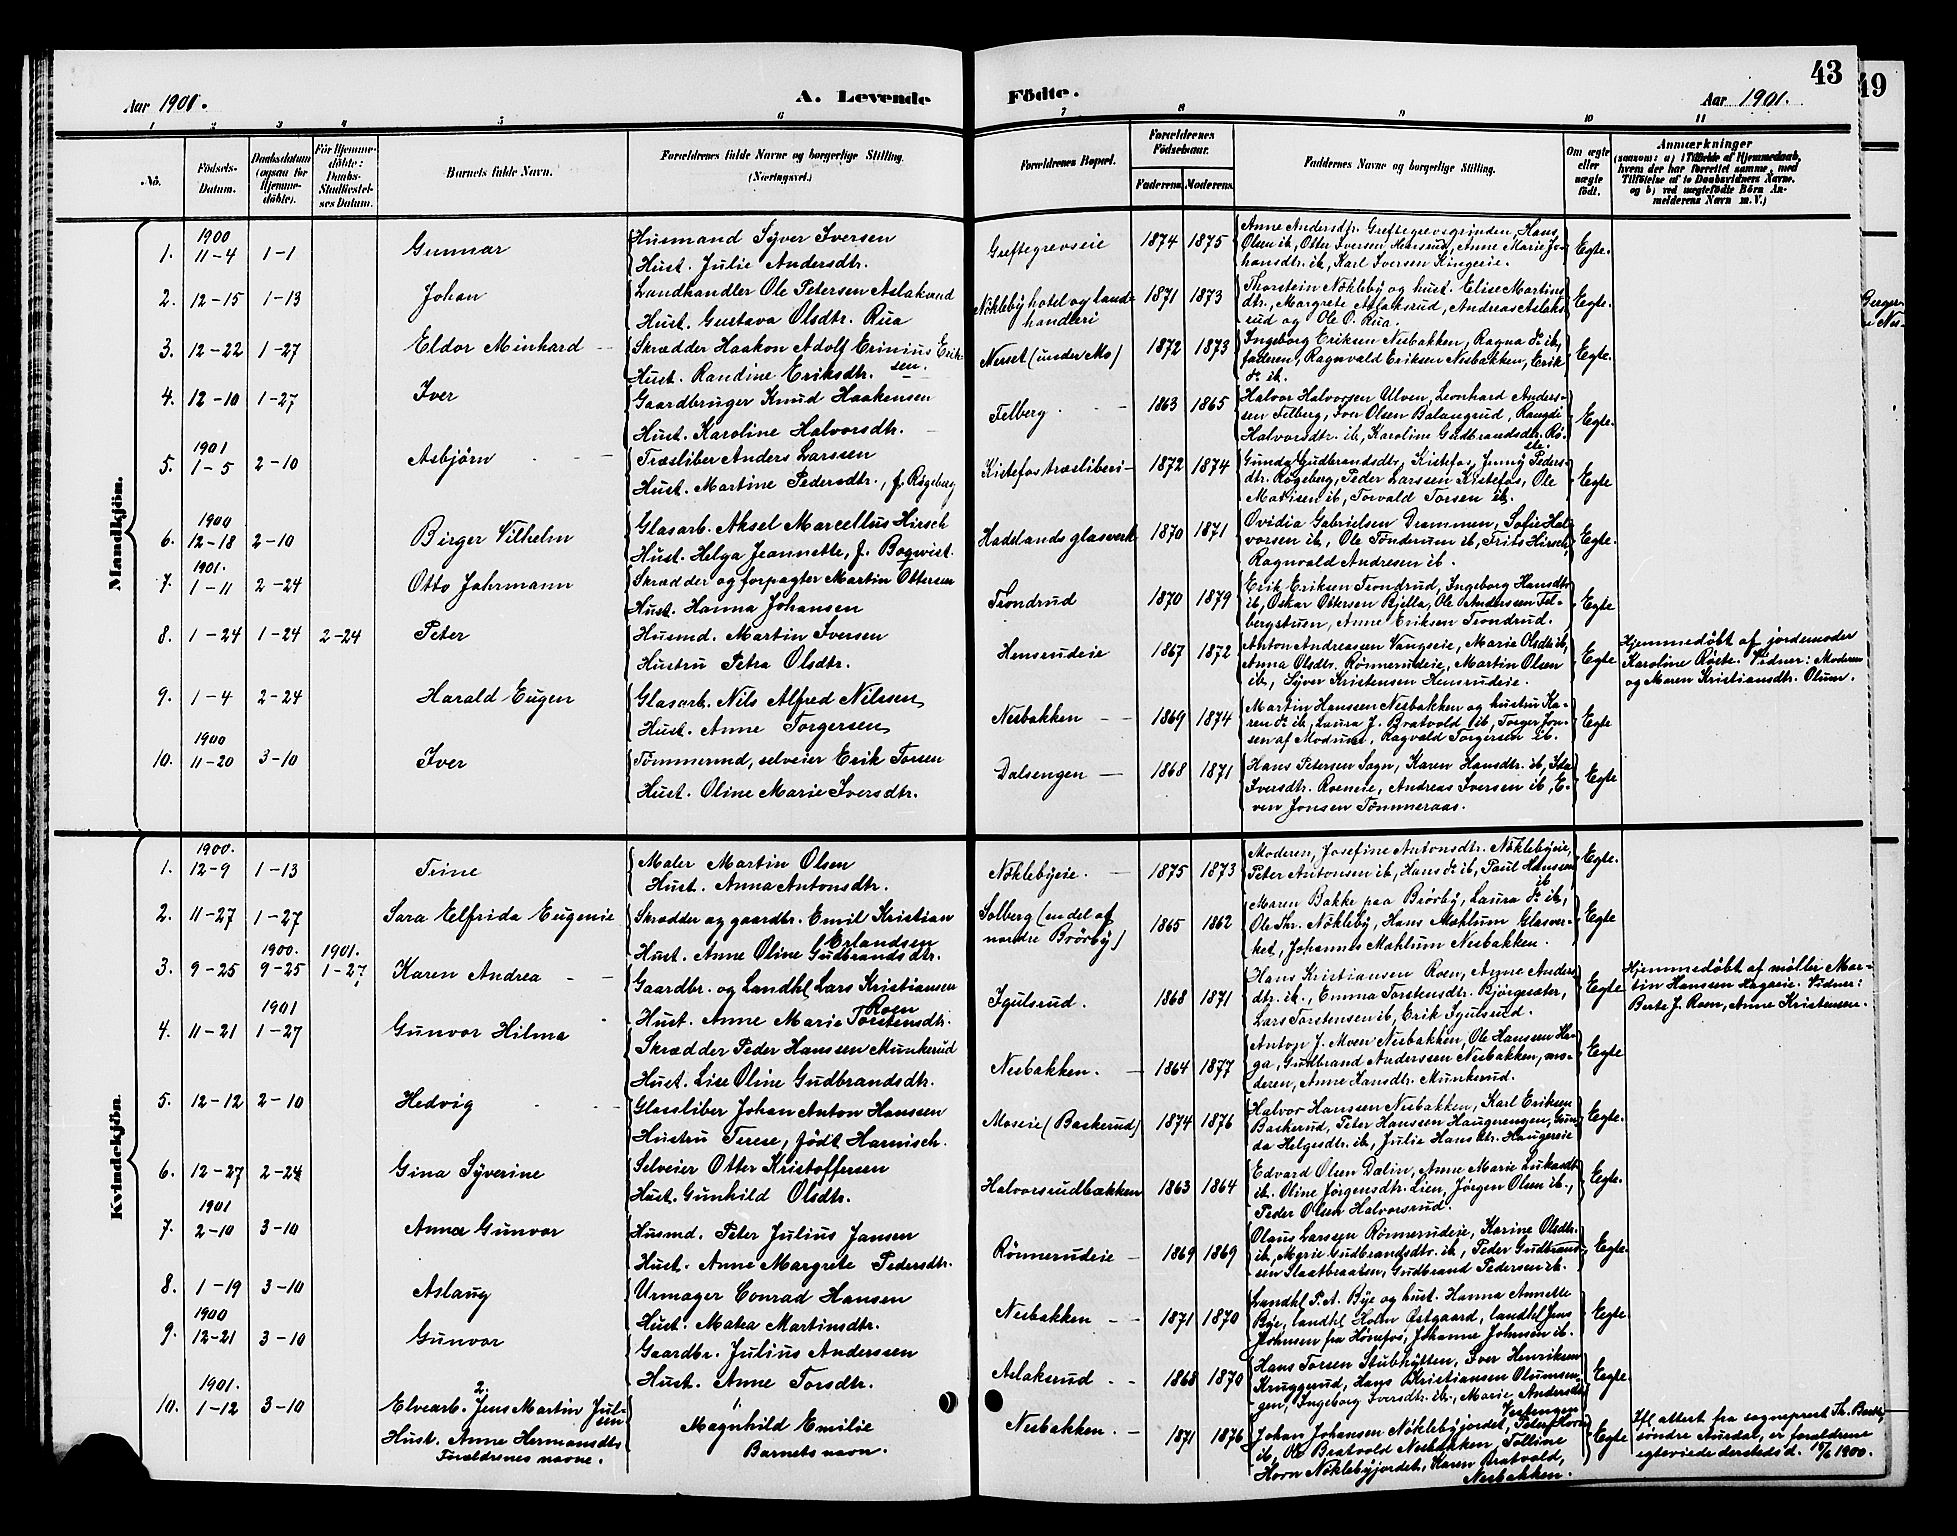 43
49
Aar 1901.
A. Levende
Födte.
Aar 1901.
1 2 3 4 5 6
7 8 9 10 11
No.
Födsels-Datum.
Daabsdatum (ogsaa for Hjemmedöbte).
For Hjemmedöbte: Daabs-Stadfæstelses Datum.
Barnets fulde Navn.
Forældrenes fulde Navne og borgerlige Stilling. (Næringsvei.)
Forældrenes Bopæl.
Forældrenes Födselsaar.
Faderens. Moderens.
Faddernes Navne og borgerlige Stilling.
Om ægte eller uægte födt.
Anmærkninger
(saasom: a) i Tilfælde af Hjemmedaab, hvem der har forrettet samme, med Tilföielse af to Daabsvidners Navne, og b) ved uægtefödte Börn Anmelderens Navn m. V.)
Mandkjön.
1. 1900 11-4 1-1 Gunnar
Husmand Syver Iversen
Hust. Julie Andersdtr.
Greftegrevseie 1874 1875
Anne Andersdtr Greftegrevsgrinden, Hans
Olsen ib, Otter Iversen Hensrud, Anne Marie Jo-
hansdtr. ib, Karl Iversen Kingeeie.
Egte.
2. 12-15 1-13 Johan
Landhandler Ole Petersen Aslaksrud
Hust. Gustava Olsdtr. Rua
Nöklebÿ hotel og land-
handleri 1871 1873
Thorstein Nöklebÿ og hust. Elise Martine
dtr, Margrete Aslaksrud, Andreas Aslaks-
rud og Ole O. Rua.
Egte.
3. 12-22 1-27 Eldor Meinhard
Skrædder Haakon Adolf Erinius Erik-
sen.
Hust. Randine Eriksdtr.
Nesset (under Mo) 1872 1873
Ingeborg Eriksen Nesbakken, Ragna do ib,
faderen, Ragnvald Eriksen Nesbakken, Erik
do ib.
Egte
4. 12-10 1-27 Iver
Gaardbruger Knud Haakensen
Hust. Karoline Halvorsdtr.
Felberg 1863 1865
Halvor Halvorsen Ulven, Leonhard Anders-
sen Felberg, Iver Olsen Balangrud, Rangdi
Halvorsdtr. ib, Karoline Gudbrandsdtr. Rö-
ste.
Egte.
5. 1901 1-5 2-10 Asbjörn
Træsliber Anders Larssen
Hust. Martine Pedersdtr., f. Røgeberg
Kistefos træsliberi 1872 1874
Gunda Gudbrandsdtr. Kistefos, Jenny Peders-
dtr. Røgeberg, Peder Larssen Kistefos, Ole
Mathisen ib, Torvald Torsen ib.
Egte
6. 1900 12-18 2-10 Birger Vilhelm
Glasarb. Aksel Marcellus Hirsch
Hust. Helga Jeannette, f. Boqwist.
Hadelands glasverk 1870 1871
Ovidia Gabrielsen Drammen, Sofie Hal-
vorsen ib, Ole Tönderum ib, Frits Hirsch,
Ragnvald Andresen ib.
Egte.
7. 1901. 1-11 2-24 Otto Jahrmann
Skrædder og forpagter Martin Ottersen
Hust. Hanna Johansen
Trondrud 1870 1879
Erik Eriksen Trondrud, Ingeborg Hansdtr
ib, Oskar Ottersen Bjella, Ole Anderssen Fel-
bergstuen, Anne Eriksen Trondrud.
Egte
8. 1-24 1-24 2-24 Peter
Husmd. Martin Iversen
Hustru Petra Olsdtr.
Hensrudeie 1867 1872
Anton Andreassen Vangseie, Marie Olsdtr. ib,
Anna Olsdtr. Rønnerudeie, Martin Olsen
ib, Syver Kristensen Hensrudeie.
Egte
Hjemmedøbt af jordemoder
Karoline Røste. Vidner: Moderen
og Maren Kristiansdtr. Olum.
9. 1-4 2-24 Harald Eugen
Glasarb. Nils Alfred Nilssen
Hust. Anne Torgersen
Nesbakken 1869 1874
Martin Hanssen Nesbakken og hustru Ka-
ren do ib, Laura J. Bratvold ib, Torger Jon-
sen af Modum, Ragvald Torgersen ib.
Egte
10. 1900 11-20 3-10 Iver
Tømmermd, selveier Erik Torsen
Hust. Oline Marie Iversdtr.
Dalsengen 1868 1871
Hans Petersen Sogn, Karen Hansdtr. ib, Ida
Iversdtr. Roeneie, Andreas Iversen ib, E-
ven Jonsen Tømmeraas.
Egte
Kvindekjön.
1. 1900. 12-9 1-13 Trine
Maler Martin Olsen
Hust. Anna Antonsdtr.
Nöklebyeie. 1875 1873
Moderen, Josefine Antonsdtr. Nöklebyeie,
Peter Antonsen ib, Hans do ib, Paul Hanssen
ib
Egte.
2. 11-27 1-27 Sara Elfrida Eugenie
Skrædder og gaardbr. Emil Kristian
Erlandsen
Hust. Anne Oline Gudbrandsdtr.
Solberg (en del af
nordre Brörby) 1865 1862
Maren Bakke paa Brörby, Laura do ib,
Ole Thr. Nökleby, Hans Mæhlum Glasver-
ket, Johannes Mæhlum Nesbakken.
Egte
3. 9-25 1900. 9-25 1901. 1-27 Karen Andrea
Gaardbr. og Landhl. Lars Kristiansen
Roen
Hust. Anne Marie Torstensdtr.
Igulsrud. 1868 1871
Hans Kristiansen Roen, Anne Anders
dtr. ib., Emma Torstensdtr. Bjørgesæter,
Lars Torstensen ib, Erik Igulsrud.
Egte
Hjemmedøbt af møller Mar-
tin Hanssen Hagaeie. Vidner:
Berte J. Roen, Anne Kristensen.
4. 11-21 1901 1-27 Gunvor Hilma
Skrædder Peder Hanssen Munkerud
Hust. Lise Oline Gudbrandsdtr.
Nesbakken. 1864 1877
Anton J. Moen Nesbakken, Ole Hanssen Ha-
ga, Gudbrand Anderssen Nesbakken, mo-
deren, Anne Hansdtr. Munkerud.
Egte
5. 12-12 2-10 Hedvig
Glassliber Johan Anton Hanssen
Hustru Terese, født Harnisch.
Moseie (Baskerud) 1874 1876
Halvor Hanssen Nesbakken, Karl Eriksen
Baskerud, Peter Hanssen Haugnengen, Gun-
da Helgesdtr. ib, Julie Hansdtr. Haugereie
Egte.
6. 12-27 2-24 Gina Syverine
Selveier Otter Kristoffersen
Hust. Gunhild Olsdtr.
Halvorsrudbakken 1863 1864
Edvard Olsen Dalin, Anne Marie Lukasdtr
ib. Oline Jørgensdtr. Lien, Jørgen Olsen ib.,
Peder Olsen Halvorsrud.
Egte.
7. 1901 2-10 3-10 Anna Gunvor
Husmd. Peter Julius Jansen
Hust. Anne Margrete Pedersdtr.
Rönnerudeie 1869 1869
Olaus Larssen Rönnerudeie, Karine Olsdtr.
ib, Marie Gudbrandsdtr. ib, Peder Gudbrand-
sen Slaatbraaten, Gudbrand Pedersen ib.
Egte.
8. 1-19 3-10 Aslaug
Urmager Conrad Hansen
Hust. Matea Martinsdtr.
Nesbakken 1871 1870
Landhl. P. A. Bye og hust. Hanna Annette
Bye, landhl. Holm Østgaard, landhl. Jens
Johnsen fra Hønefos, Johanne Johnson ib.
Egte.
9. 1900 12-21 3-10 Gunvor
Gaardbr. Julius Anderssen
Hust. Anne Torsdtr.
Aslaksrud 1868 1870
Hans Torsen Stubhytten, Iver Henriksen
Kruggerud, Hans Kristiansen Olumsen-
gen, Ingeborg Iversdtr. ib., Marie Andersdtr.
Vestengen
Egte
10. 1901. 1-12 3-10
2.
Elvearb. Jens Martin Jul-
sen
Hust. Anne Hermansdtr
Forældrenes navne.
1.
Magnhild Emilie
Barnets navn.
Nesbakken. 1871 1876
Johan Johansen Nöklebyjordet, Peter Horn
ib, Ole Bratvold Nesbakken, Tolline
Horn Nöklebyjordet, Karen Bratvold,
Nesbakken.
Egte
Ifl. attest fra sogneprest Th.
søndre Aurdal, er forældrene
egteviede dersteds d. 1900.